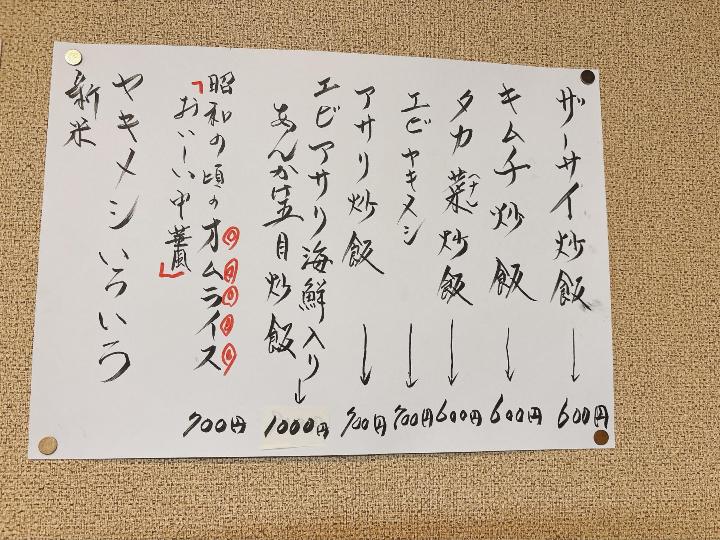 ザーサイ炒飯 → 600円
キムチ炒飯 → 600円
タカ菜炒飯 → 600円
エビヤキメシ → 700円
アサリ炒飯 → 700円
エビアサリ海鮮入り → 1000円
あんかけ五目炒飯
昭和の頃のオムライス 700円
「おいしい中華風」
ヤキメシいろいろ
新米